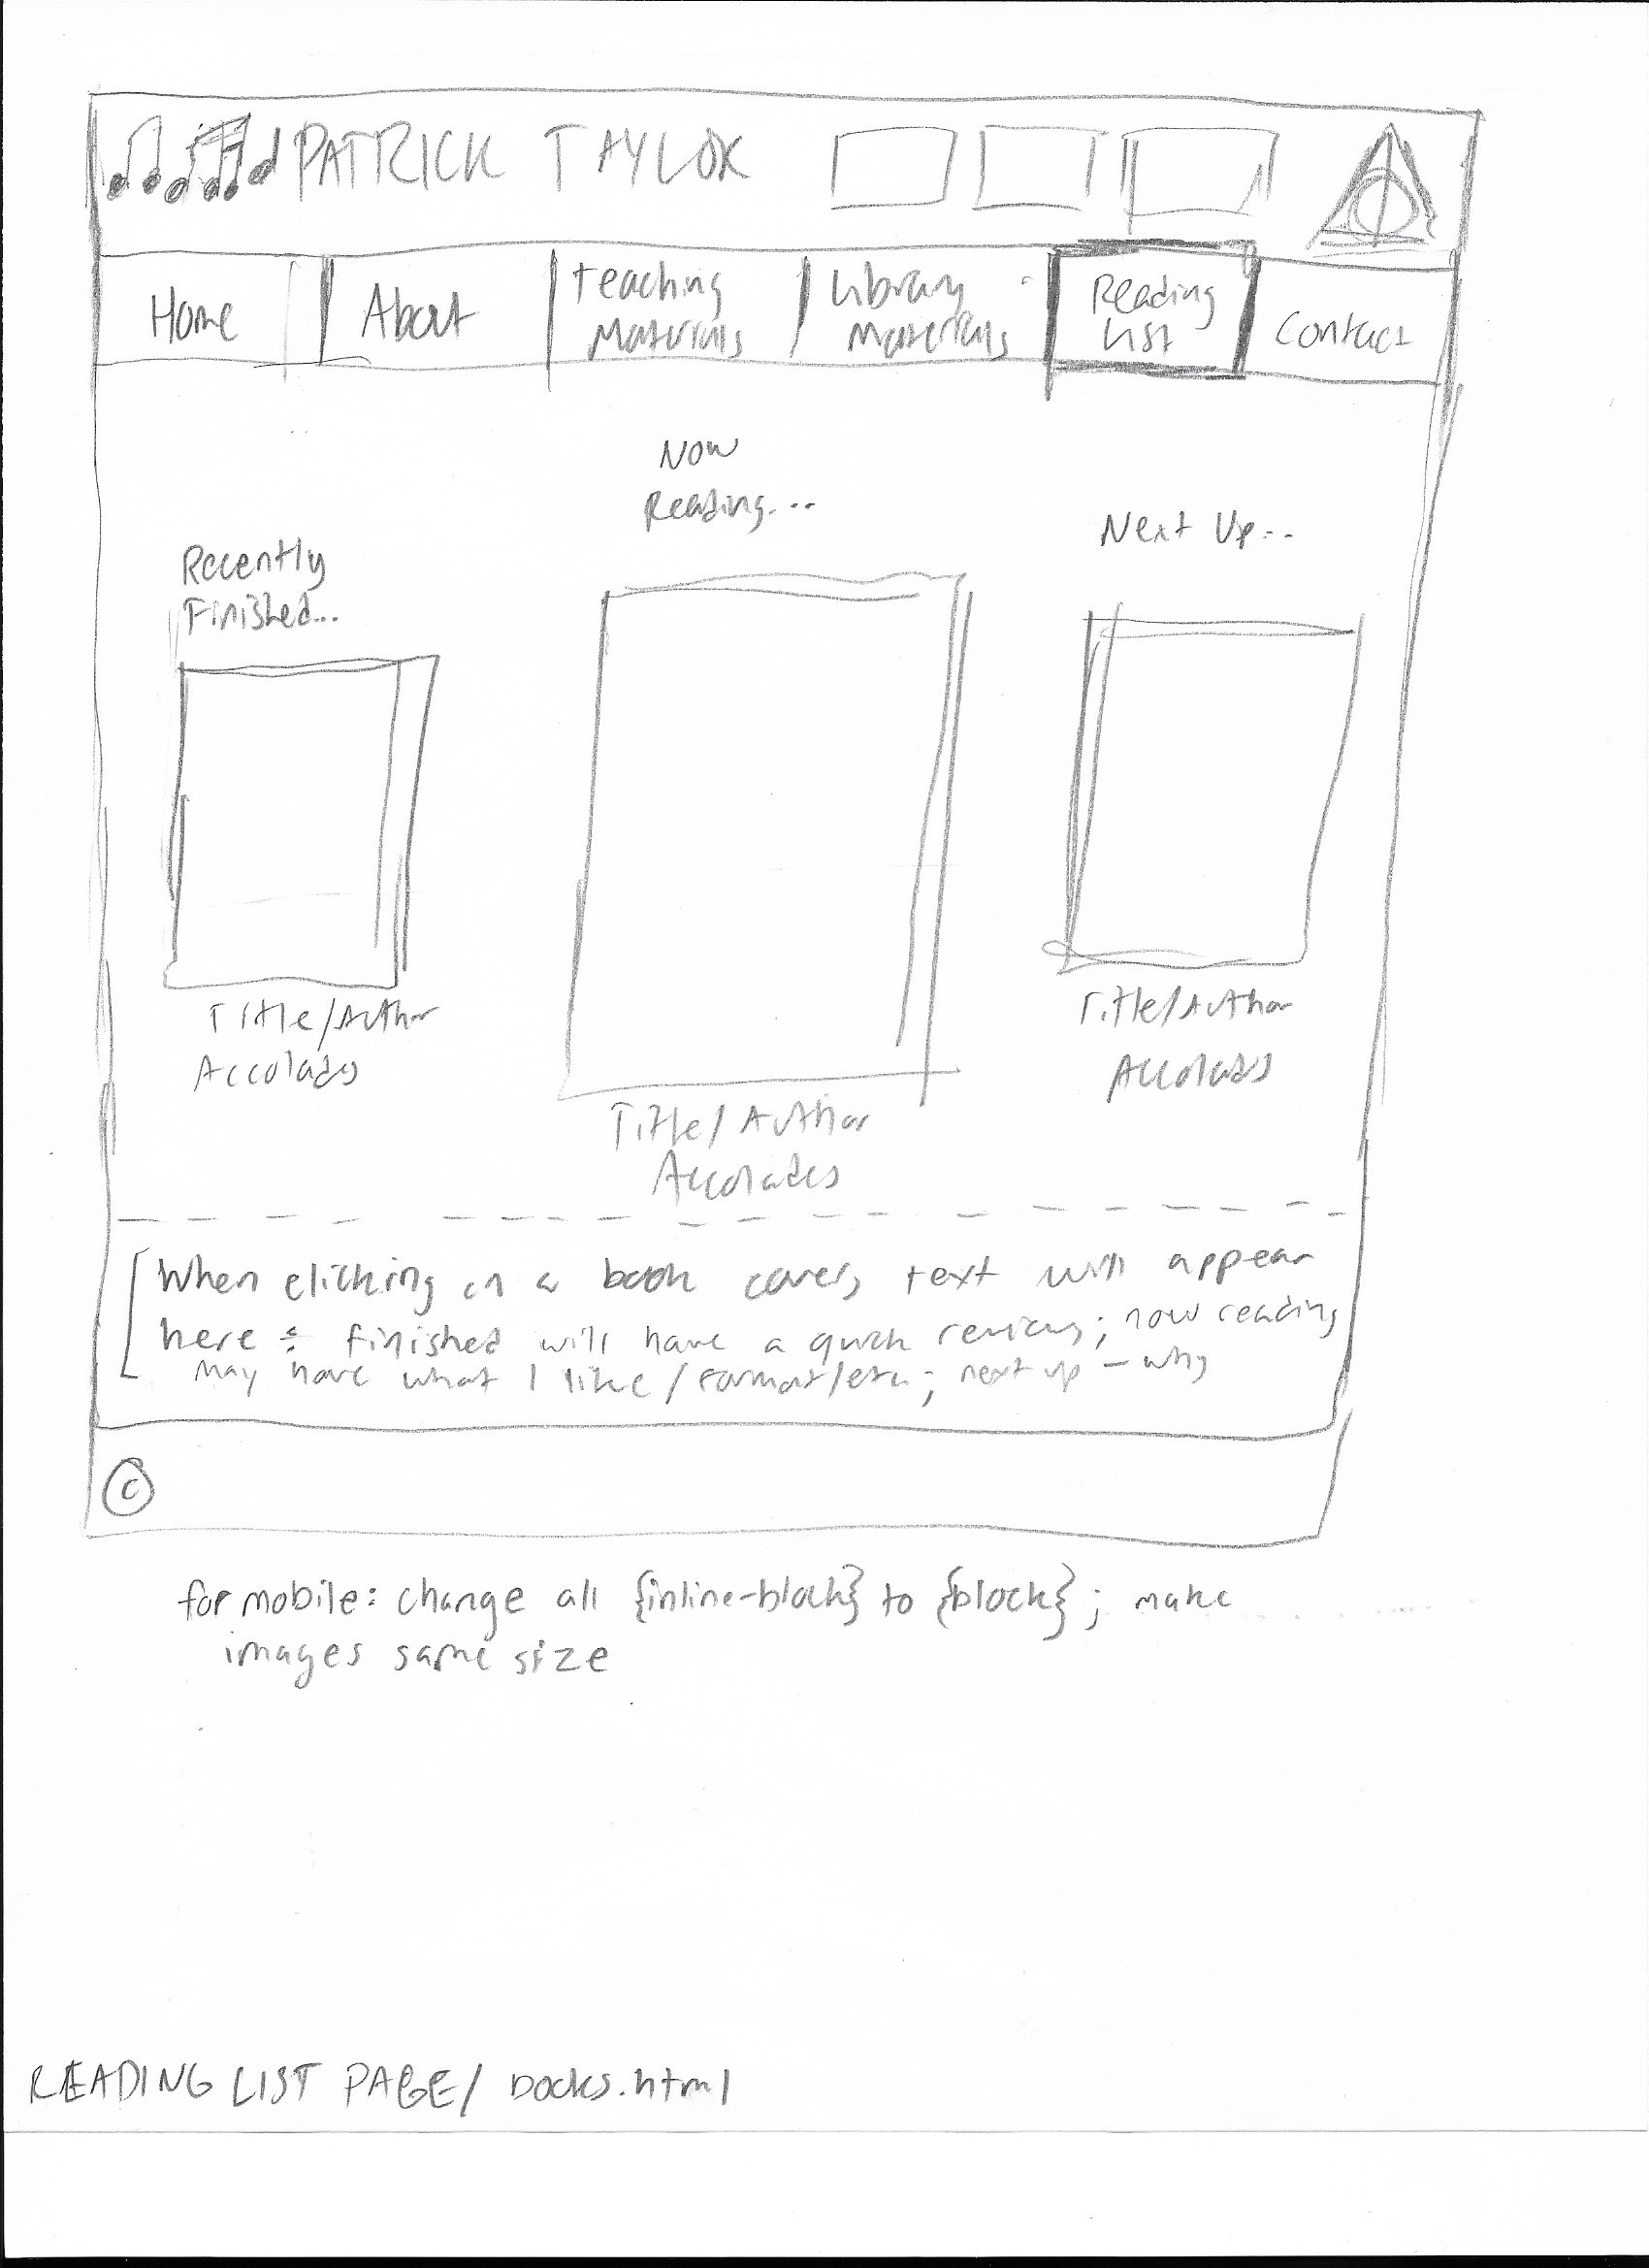 PATRICK TAYLOR
Home
About
Teaching
Materials
Library
Materials
Reading
List
Contact
Now
Reading...
Next Up...
Recently
Finished...
Title/Author
Accolades
Title/Author
Accolades
Title/Author
Accolades
When clicking on a book cover, text will appear
here: finished will have a quick review; now reading
may have what I like/format/etc.; next up - why
©
for mobile: change all {inline-block} to {block}; make
images same size
READING LIST PAGE/ books.html